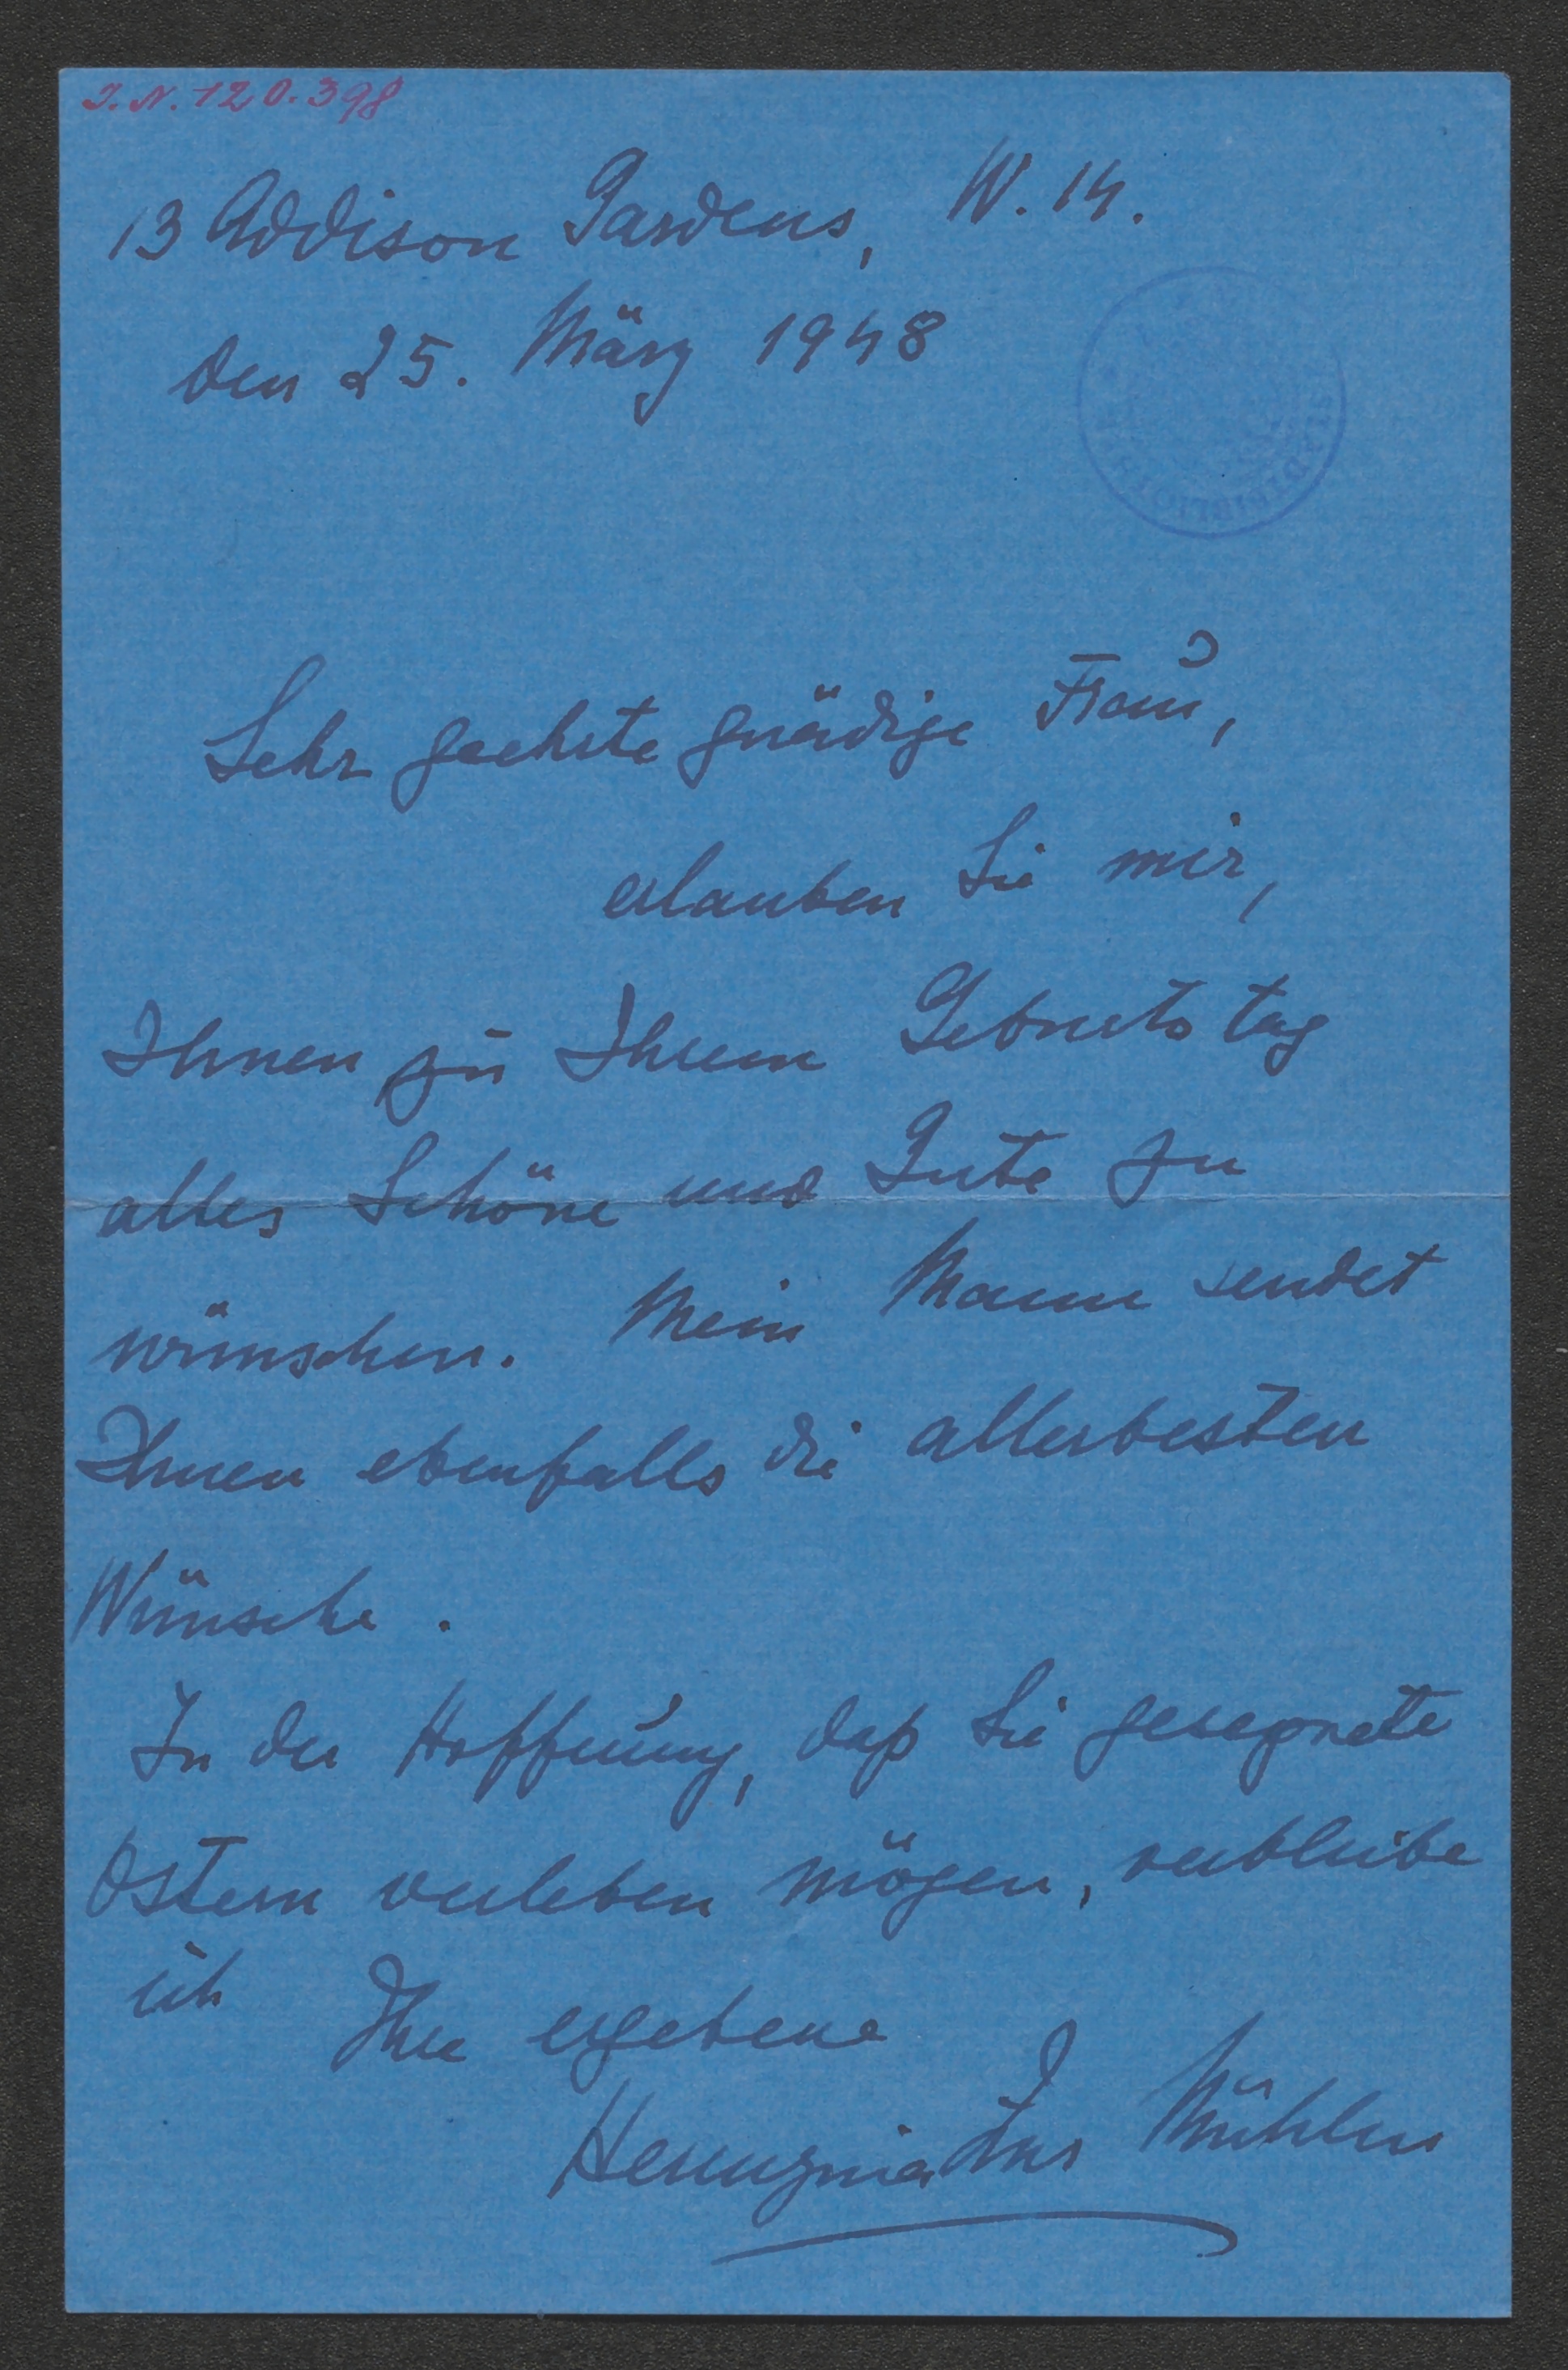 J.N. 120.398
13 Addison Gardens, W. 14.
den 25. März 1948
Sehr geehrte gnädige Frau,
erlauben Sie mir,
Ihnen zu Ihrem Geburtstag
alles Schöne und Gute zu
wünschen. Mein Mann sendet
Ihnen ebenfalls die allerbesten
Wünsche.
In der Hoffnung, daß Sie gesegnete
Ostern verleben mögen, verbleibe
ich Ihre ergebene
Hermynia Zur Mühlen